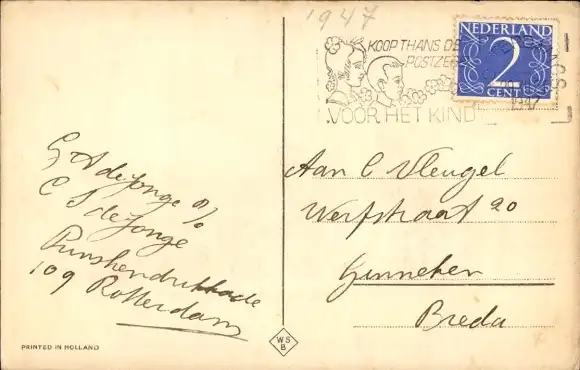 1947
KOOP THANS DE
POSTZE
VOOR HET KIND
NEDERLAND
2
CENT
1947
G A de Jonge
C S de Jonge
109 Rotterdam
Aan C Vleugel
Werfstraat 20
Ginneken
Breda
PRINTED IN HOLLAND
WS
B